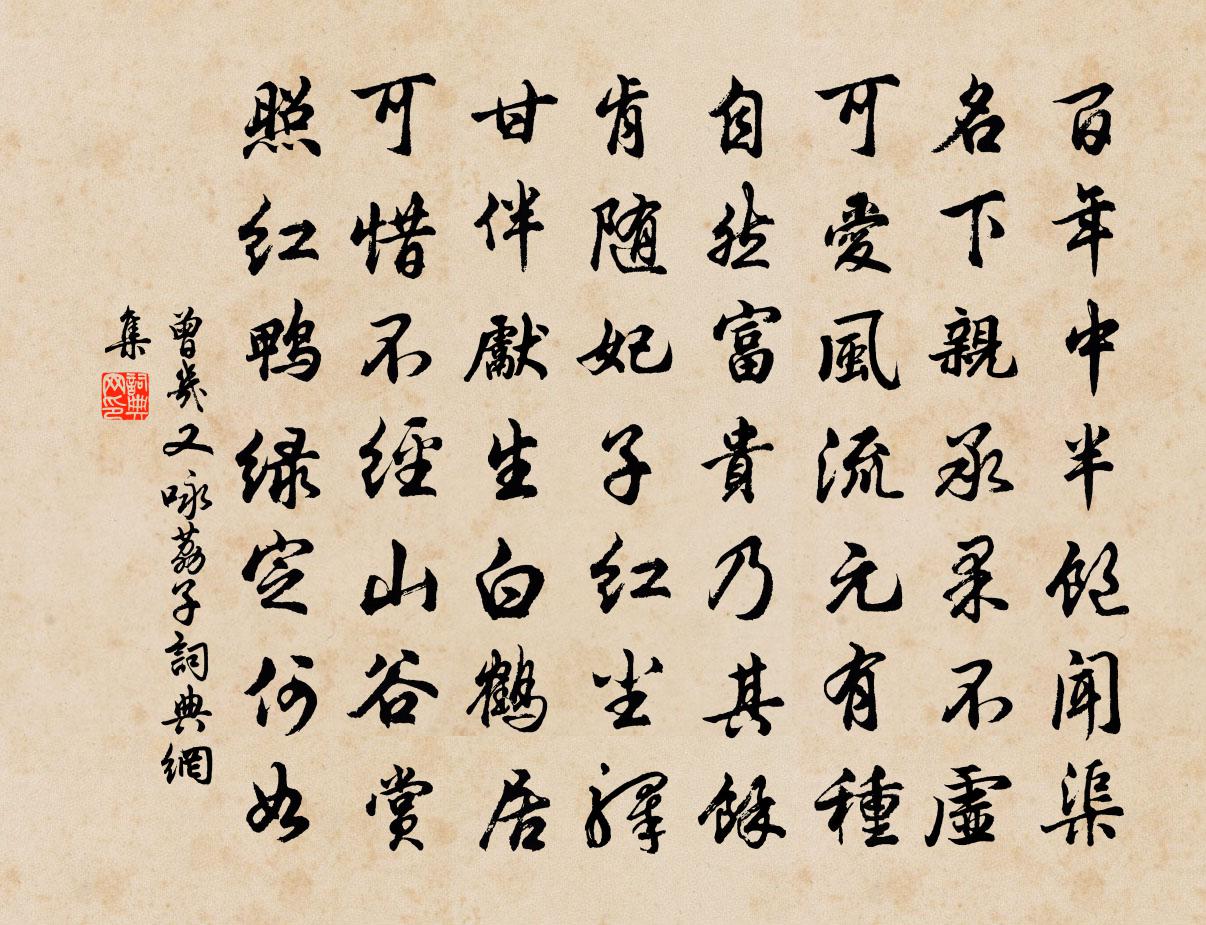 百年中半飽聞渠
名下親承果不虛
可愛風流元有種
自然富貴乃其餘
肯隨妃子紅尘驛
甘伴獻生白鶴居
可惜不經山谷賞
照红鴨绿定何如
曾幾又咏荔子詞典網
集
詞典网印